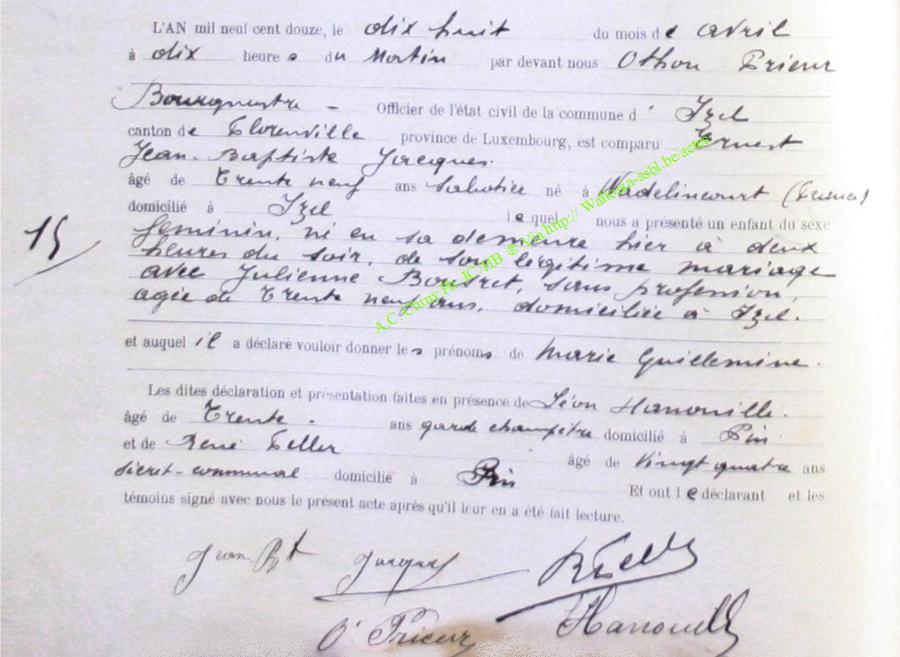 L'AN mil neuf cent douze, le dix huit du mois de avril
à dix heures du Matin par devant nous Othon Prieur
Bourgmestre - Officier de l'état civil de la commune d' Izel
canton de Florenville province de Luxembourg, est comparu Ernest
Jean-Baptiste Jacques.
âgé de trente neuf ans sabotier né à Wadelincourt (France)
domicilié à Izel lequel nous a présenté un enfant du sexe
15
féminin, né en sa demeure hier à deux
heures du soir, de son légitime mariage
avec Julienne Bousret, sans profession,
agée de trente neuf ans, domiciliée à Izel.
et auquel il a déclaré vouloir donner les prénoms de Marie Guillemine.
Les dites déclaration et présentation faites en présence de Léon Hanouille.
âgé de trente - ans garde champêtre domicilié à Pin
et de René Feller âgé de vingt quatre ans
secrét-communal domicilié à Pin Et ont le déclarant et les
témoins signé avec nous le présent acte après qu'il leur en a été fait lecture.
Jean-Bt Jacques RFeller
O. Prieur Hanouille
A.C. Chiny Ph. JC HB ® Via http://Wallonia-asbl.be/actes